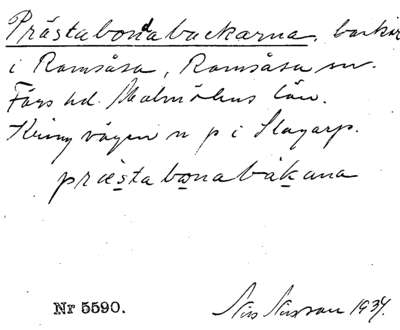 Prästabondabackarna, backar
i Ramsåsa, Ramsåsa sn.
Färs hd. Malmöhus län.
Kring vägen n p i Slagarp.
priestabonabákana
Nr 5590. Nils Nilsson 1934.